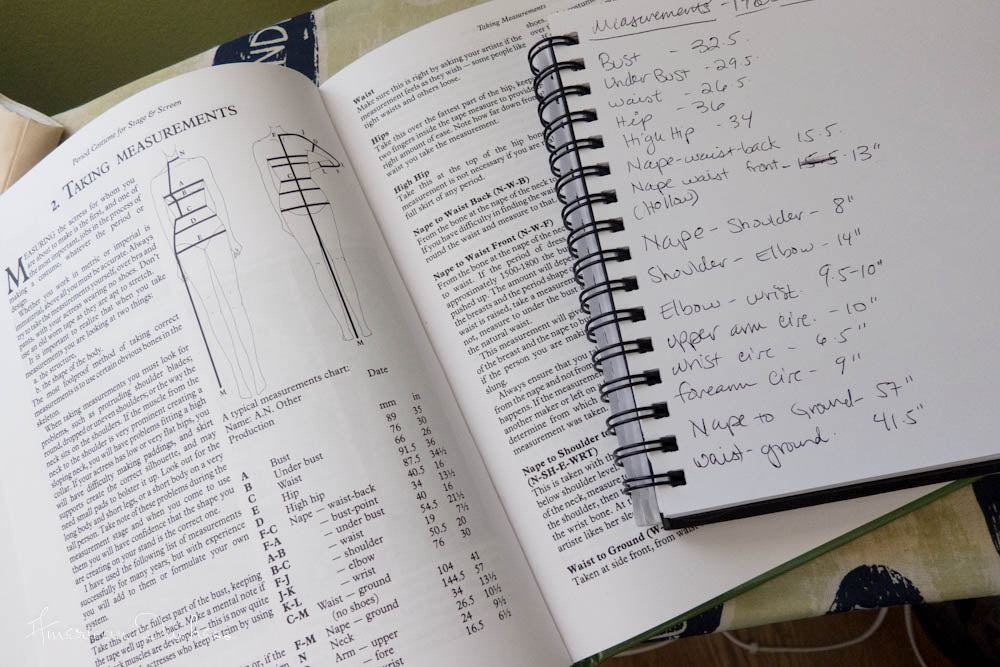 AND
Period Costume for Stage & Screen
2. TAKING MEASUREMENTS
MEASURING the actress for whom you
are about to make is the first, and one of
the most important, jobs in the process of
making a costume, whatever the period or
design.
Whether you work in metric or imperial is
immaterial, above all you must be accurate. Always
try to take the measurements yourself, over bra and
pants, with your actress wearing no shoes. Don't
use an old worn tape as they are apt to stretch.
It is important to realize that when you take
measurements you are looking at two things:
a. the structure of
b. the shape of the body.
The most foolproof method of taking correct
measurements is to use certain obvious bones in the
skeleton.
When taking measurements you must look for
problems, such as protruding shoulder blades;
round, dropped or uneven shoulders, or the way the
neck sits on the shoulders. If the muscle from the
neck to the shoulder is very prominent creating a
sloping neck, you will have problems fitting a high
collar. If your actress has low or very flat hips, you
will have difficulty making paddings, and skirt
supports create the correct silhouette, and may
need small pads to bolster it up. Look out for the
long body and short legs, or a short body on a very
tall person. Take note of these problems during the
measurement stage and when you come to use
them you will have confidence that the shape you
are creating on your stand is the correct one.
I have used the following list of measurements
successfully for many years, but with experience
you will add to them or formulate your own
system.
Bust
Take this over the fullest part of the bust, keeping
the tape well up at the back. Make a mental note if
A typical measurements chart:
Name: A.N. Other Date
Production
mm in
A Bust 89 35
B Under bust 76 30
C Waist 66 26
E Hip 91.5 36
D High hip 87.5 34½
F-C Nape – waist-back 40.5 16
F-A – bust-point 34 13½
A-B – under bust 40 16
B-C – waist 54.5 21½
F-J – shoulder 19 7½
J-K – elbow 50.5 20
K-L – wrist 76 30
C-M Waist – ground 104 41
(no shoes)
F-M Nape – ground 144.5 57
N Neck 34 13½
Arm – upper 26.5 10½
– fore 24 9½
wrist 16.5 6½
Taking Measurements
Waist
Make sure this is right by asking your artiste if the
measurement feels as they wish — some people like
tight waists and others loose.
Hips
Take this over the fattest part of the hip, keep
two fingers inside the tape measure to provide
right amount of ease. Note how far down from
waist you take the measurement.
High Hip
Take this at the top of the hip bone
measurement is not necessary if you are
full skirt of any period.
Nape to Waist Back (N-W-B)
From the bone at the nape of the neck to
If you have difficulty in finding the waist
round the waist and measure to that.
Nape to Waist Front (N-W-F)
From the bone at the nape of the neck
to waist. If the period of dress
approximately 1500-1800 the bust
pushed up. The amount will depend
the breasts and the period shape
waist is raised, take a measurement
not, measure to under the bust
the natural waist.
This measurement will give
of the breast and the nape to bust
if the person you are making
slung.
Always ensure that you take
the waist and not from
happens. If the measurement
another maker or left on
determine from which
measurement was taken.
Nape to Shoulder to
(N-SH-E-WRT)
This is taken with the
below shoulder level
of the neck, measure
the shoulder, then
the wrist bone. At
artiste likes her sleeve
Waist to Ground (W-
Taken at side front, from waist
Measurements
Bust - 32.5
Under Bust - 29.5
waist - 26.5
Hip - 36
High Hip - 34
Nape-waist-back 15.5
Nape waist front - 13"
(Hollow)
Nape - Shoulder - 8"
Shoulder - Elbow - 14"
Elbow - wrist. 9.5-10"
upper arm circ. - 10"
wrist circ - 6.5"
forearm circ - 9"
Nape to Ground - 57"
waist-ground. 41.5"